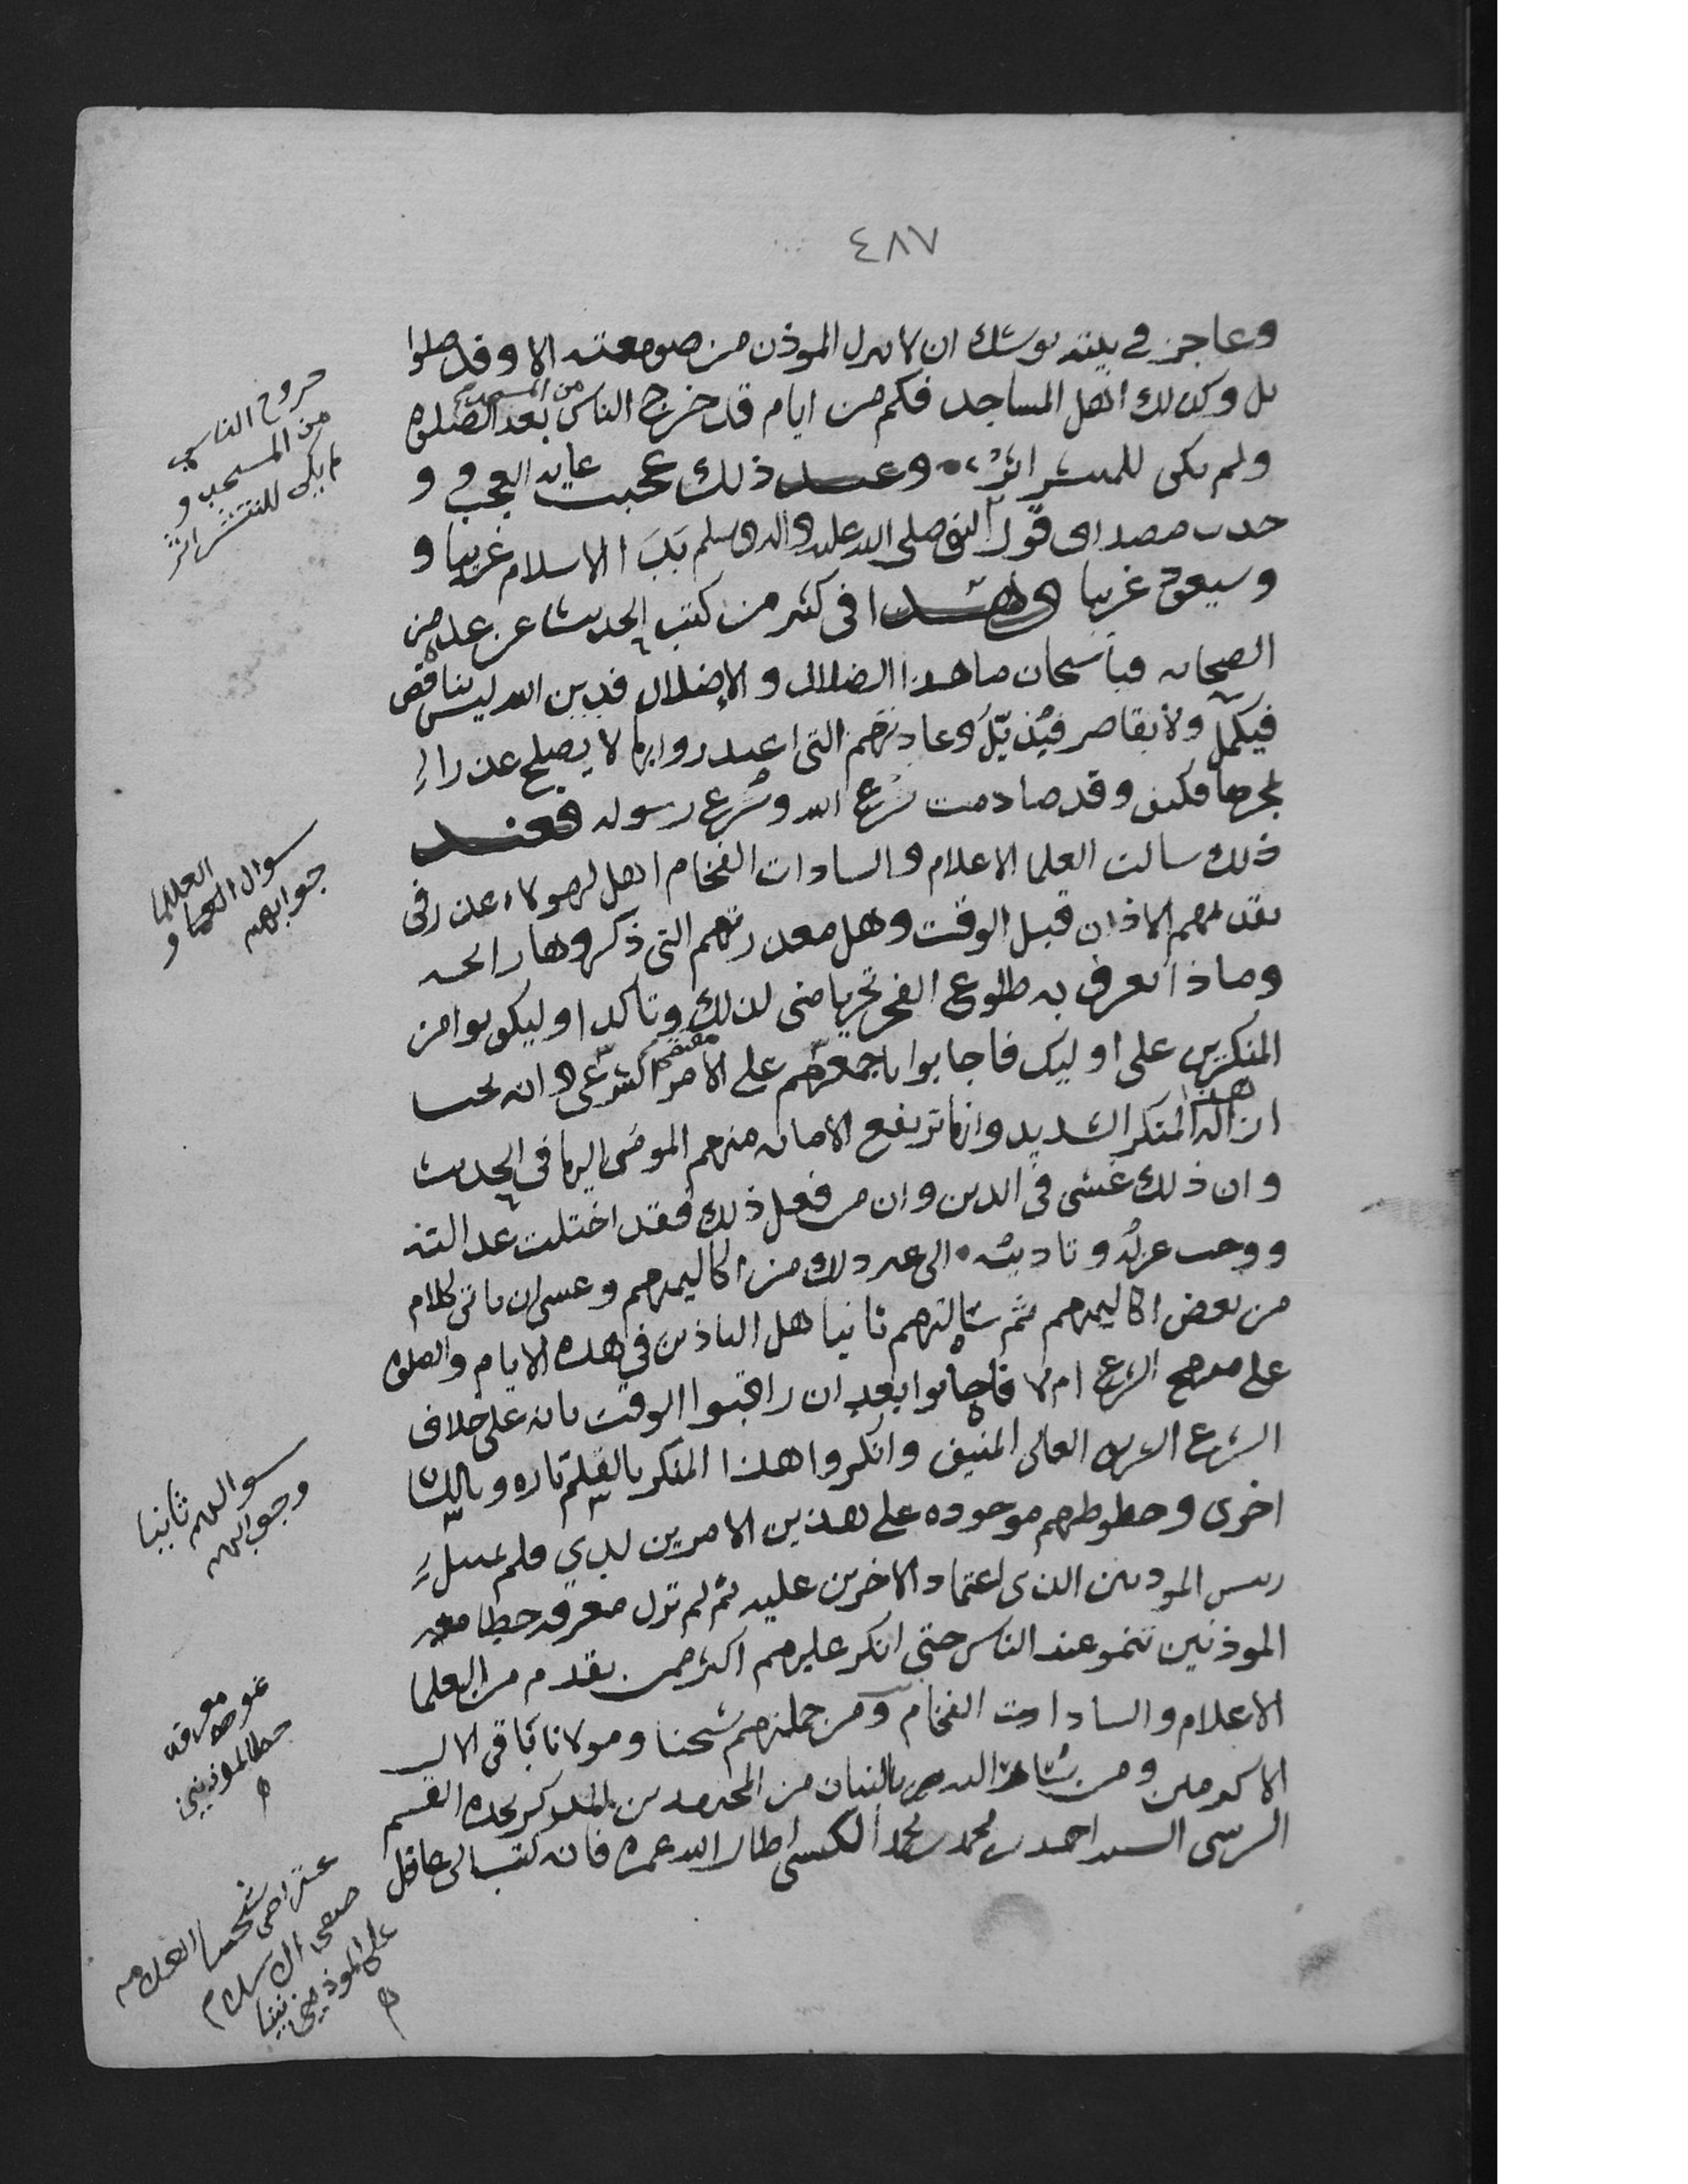 ٤٨٧
وعاجز في بيته يوشك ان لا ينزل الموذن من صومعته الا وقد صلوا
بل وكذلك اهل المساجد فكم من ايام قد خرج الناس من المسجد بعد الصلوة
ولم يكن للمنتشر اثر وعند ذلك عجبت غايه العجب و
حدث مصداق قول النبي صلى الله عليه واله وسلم بدا الاسلام غريبا و
وسيعود غريبا وهذا في كثير من كتب الحديث عن عده من
الصحابه فيا سبحان ما هذا الضلال والاضلال فدين الله ليس بناقص
فيكمل ولا بقاصر فيذيل وعادتهم التي لا يصلح عذرا
فكيف وقد صادمت شرع الله وشرع رسوله فعند
ذلك سالت العلما الاعلام والسادات الفخام اهل لهولاء عذر في
تقديمهم الاذان قبل الوقت وهل معذرتهم التي ذكروها رابحه
وماذا يعرف به طلوع الفجر تحريا مني لذلك وتاكدا وليكونوا من
المنكرين على اوليك فاجابوا باجمعهم على الامر الشرعي وانه يجب
ازاله هذا المنكر الشديد وانها ترتفع الامانه منهم المومى اليها في الحديث
وان ذلك غش في الدين وان من فعل ذلك فقد اختلت عدالته
ووجب عزله وتاديبه الى غير ذلك من اكاليمهم وعسى ان ياتي كلام
من بعض اكاليمهم ثم سالتهم ثانيا هل التاذين في هذه الايام والصلوة
على منهج الشرع ام لا فاجابوا بعد ان راقبوا الوقت بانه على خلاف
الشرع الشريف العالي المنيف وانكروا هذا المنكر بالقلم تاره وباللسان
اخرى وخطوطهم موجوده على هذين الامرين لدي فلم
رييس الموذنين الذي اعتماد الاخرين عليه ثم لم تزل معرفه خطا معه
الموذنين تنمو عند الناس حتى انكر عليهم اكثر من تقدم من العلما
الاعلام والسادات الفخام ومن جملتهم شيخنا ومولانا باقي الال
الاكرمين ومن الدهر من المجتهدين
السيد احمد بن محمد بن محمد الكبسي اطال الله عمره فانه كتب الى عاقل
خروج الناس
من المسجد و
لم يكن للمنتشر اثر
سوال العلما و
جوابهم
سوالهم ثانيا
وجوابهم
نمو معرفه
خطا الموذنين
شيخنا العلامه
صفي الاسلام
على الموذنين